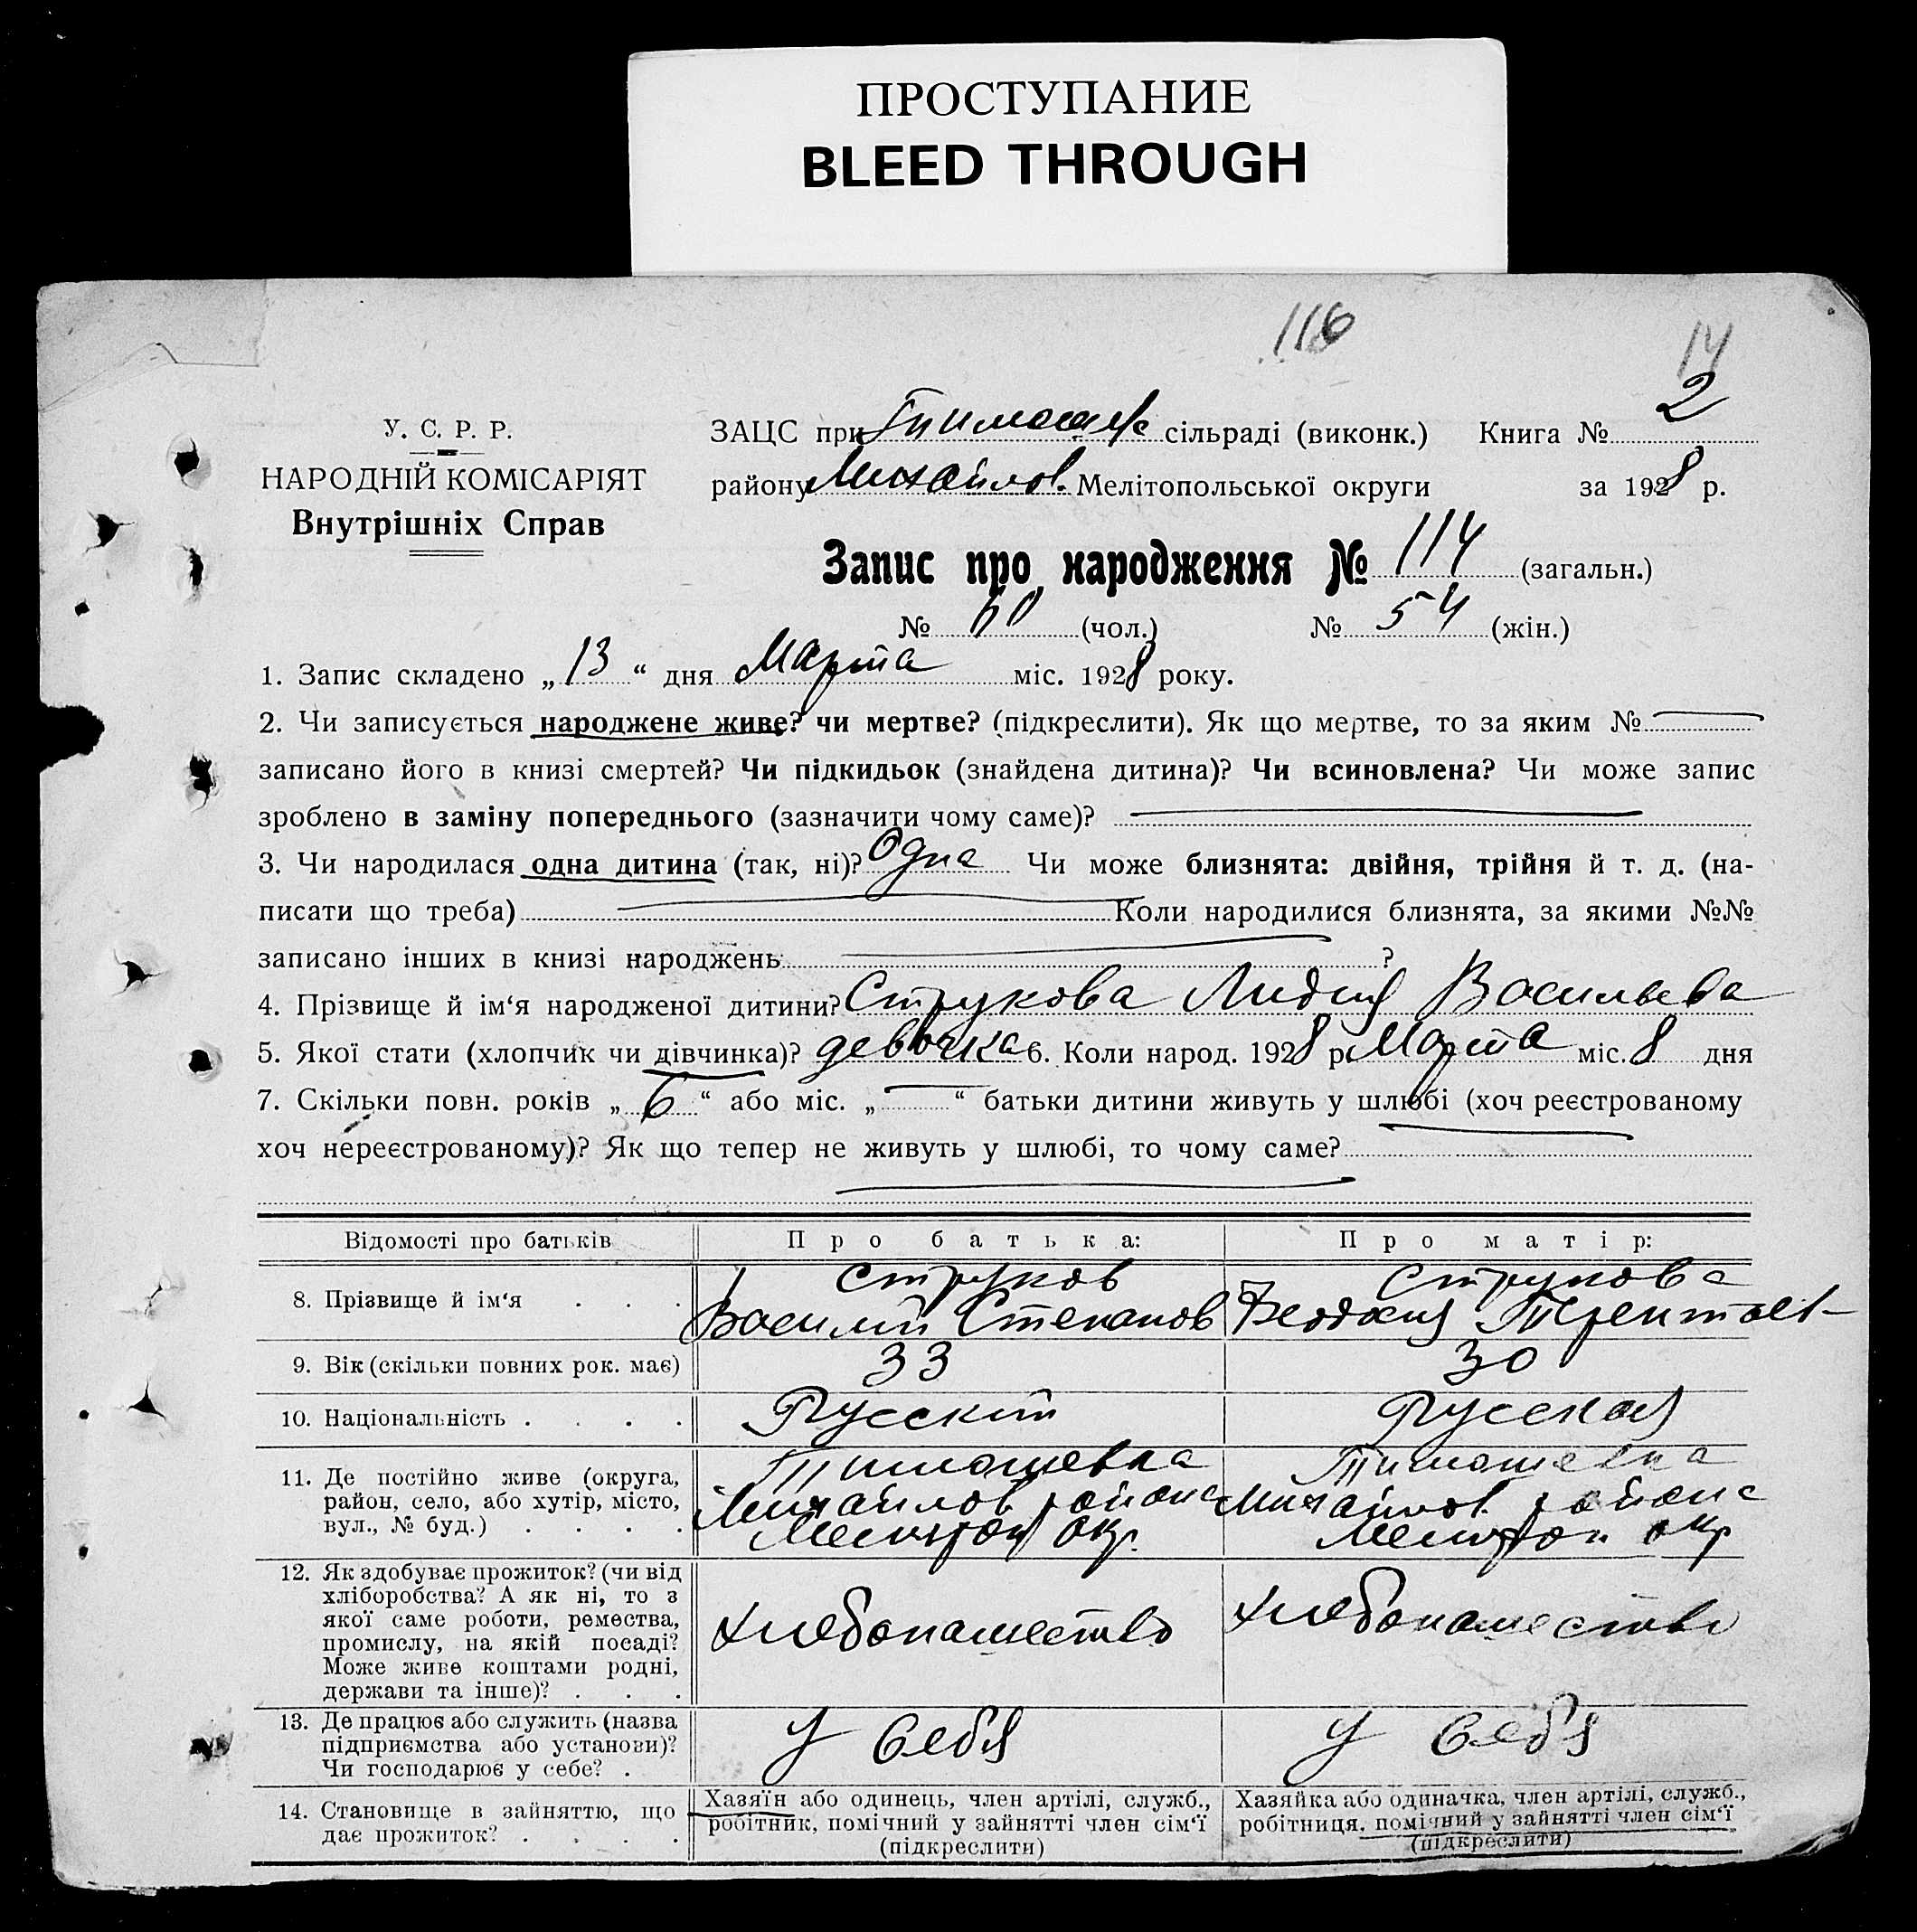 ПРОСТУПАНИЕ
BLEED THROUGH
116
14
У. С. Р. Р.
НАРОДНІЙ КОМІСАРІЯТ
Внутрішніх Справ
ЗАЦС при Тимошев сільраді (виконк.) Книга № 2
району Михайлов. Мелітопольської округи за 1928 р.
Запис про народження № 114 (загальн.)
№ 60 (чол.) № 54 (жін.)
1. Запис складено „ 13 “ дня Марта міс. 1928 року.
2. Чи записується народжене живе? чи мертве? (підкреслити). Як що мертве, то за яким №
записано його в книзі смертей? Чи підкидьок (знайдена дитина)? Чи всиновлена? Чи може запис
зроблено в заміну попереднього (зазначити чому саме)?
3. Чи народилася одна дитина (так, ні)? Одна Чи може близнята: двійня, трійня й т. д. (на-
писати що треба) Коли народилися близнята, за якими №№
записано інших в книзі народжень ?
4. Прізвище й ім‘я народженої дитини? Струкова Лидия Васильева
5. Якої стати (хлопчик чи дівчинка)? девочка 6. Коли народ. 1928 р. Марта міс. 8 дня
7. Скільки повн. років „ 6 “ або міс. „ “ батьки дитини живуть у шлюбі (хоч реєстрованому
хоч нереєстрованому)? Як що тепер не живуть у шлюбі, то чому саме?
Відомості про батьків Про батька: Про матір:
8. Прізвище й ім‘я . . . Струков Василий Степанов Струкова Феодосия Терентьев
9. Вік (скільки повних рок. має) 33 30
10. Національність . . . . Русский Русская
11. Де постійно живе (округа,
район, село, або хутір, місто,
вул., № буд.) . . . .
Тимошевка
Михайлов района
Мелитоп окр.
Тимошевка
Михайлов. района
Мелитоп окр
12. Як здобуває прожиток? (чи від
хліборобства? А як ні, то з
якої саме роботи, ремества,
промислу, на якій посаді?
Може живе коштами родні,
держави та інше)? . . .
Хлебопашество
Хлебопашество
13. Де працює або служить (назва
підприємства або установи)?
Чи господарює у себе? .
У себя
У себя
14. Становище в зайняттю, що
дає прожиток? . . . .
Хазяїн або одинець, член артілі, служб.,
робітник, помічний у зайнятті член сім‘ї
(підкреслити)
Хазяйка або одиначка, член артілі, служб.,
робітниця, помічний у зайнятті член сім‘ї
(підкреслити)